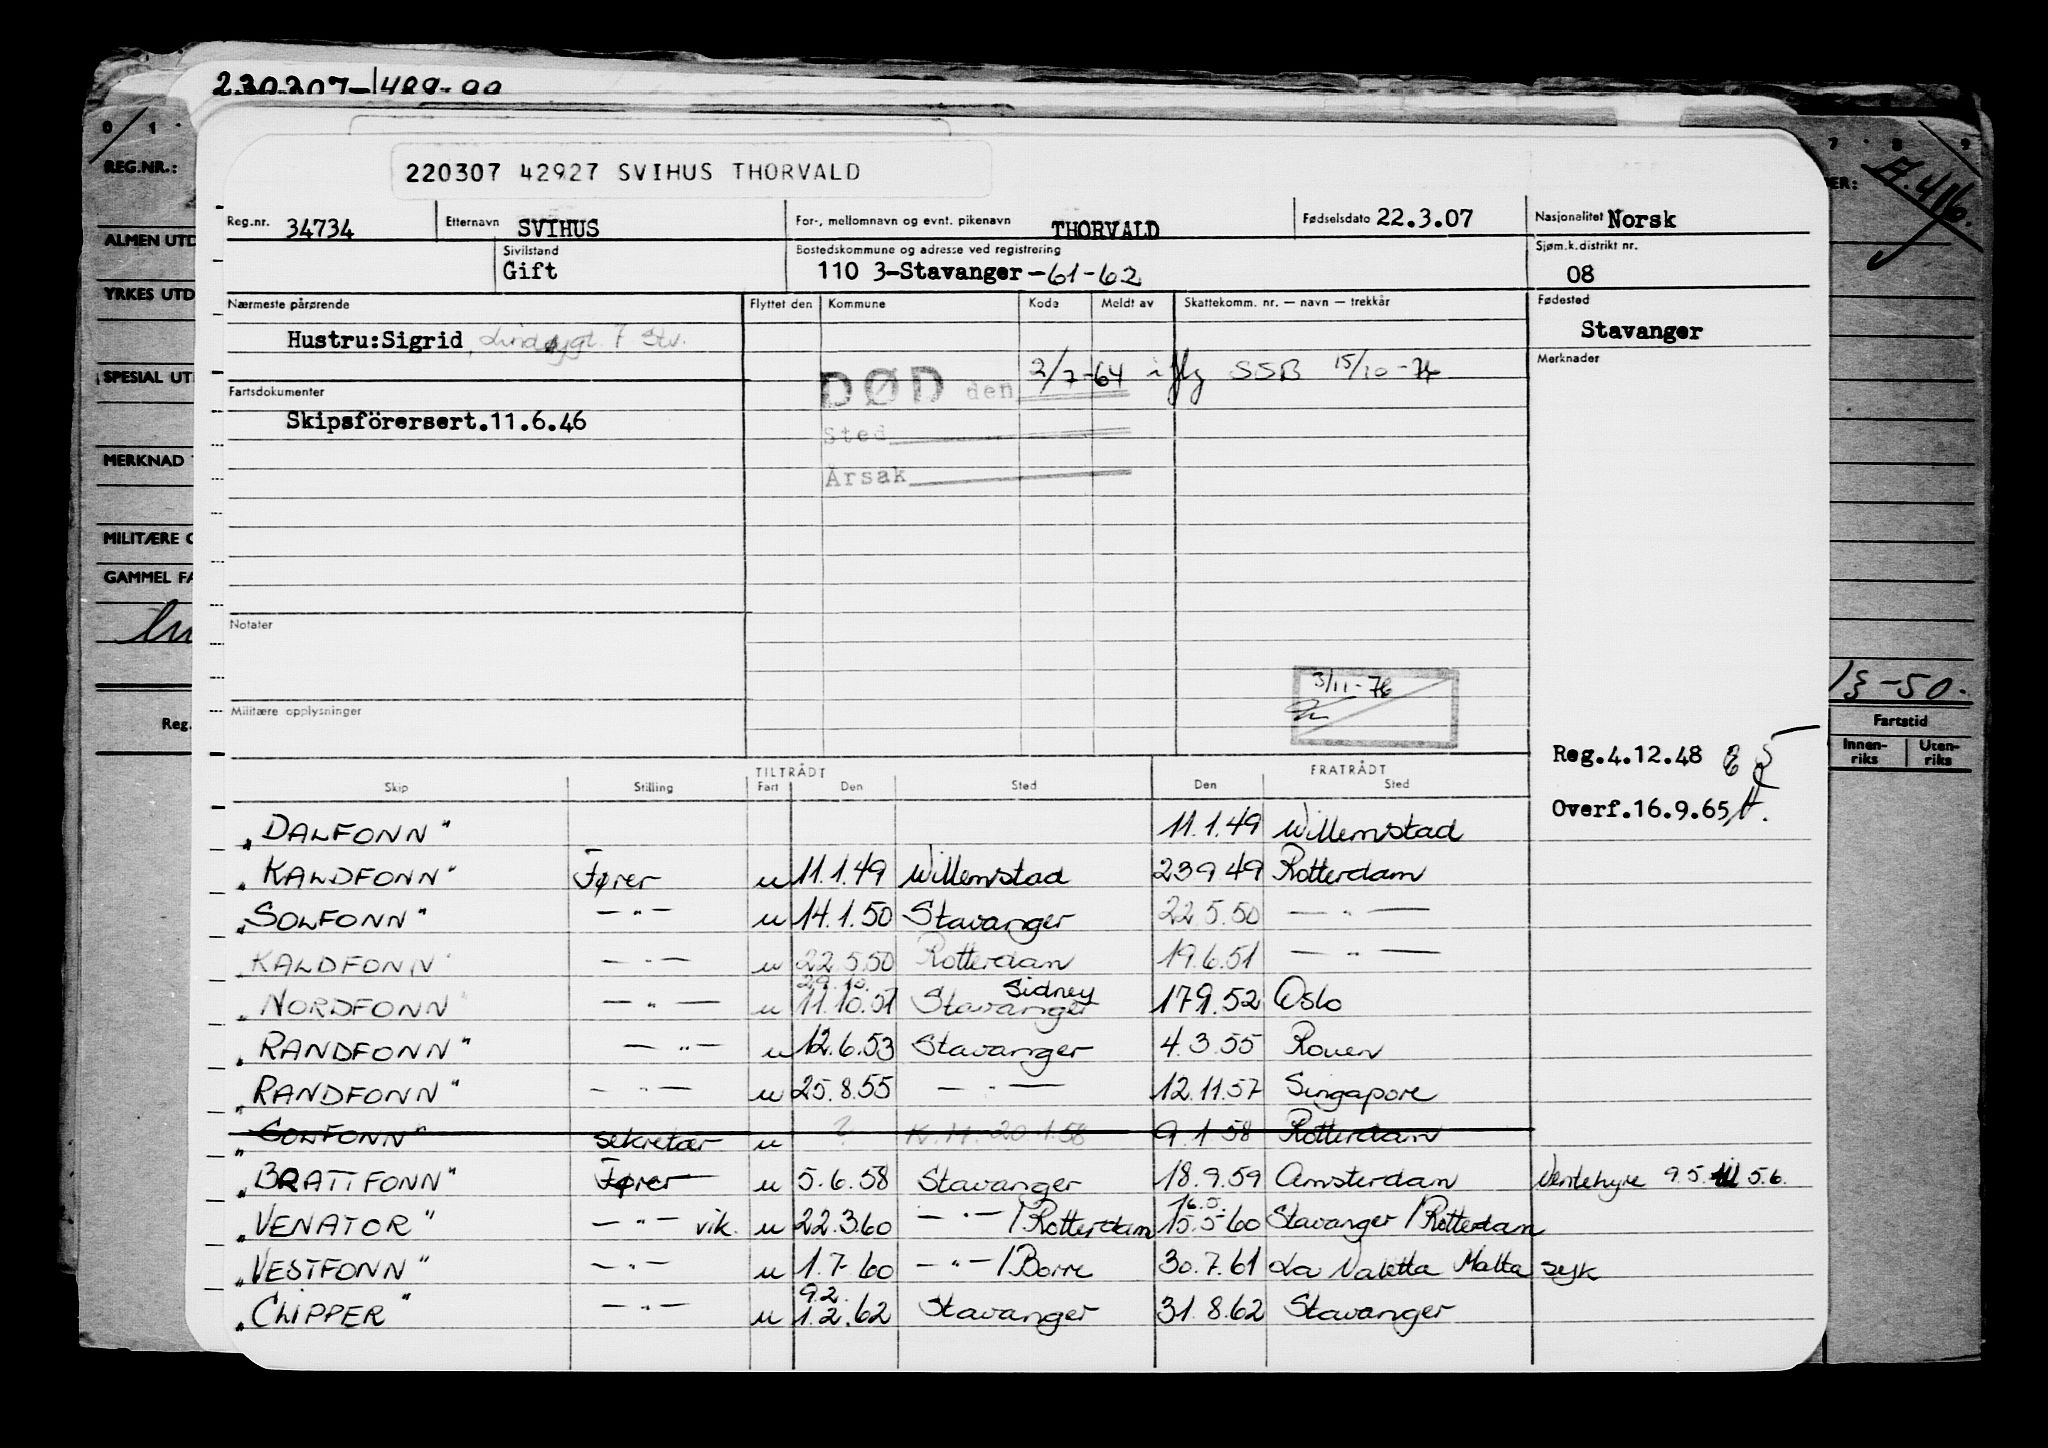 0 1 7 8 9
220307 42927 SVIHUS THORVALD
REG.NR.: A.416.
Reg.nr. 34734 Etternavn SVIHUS For-, mellomnavn og evnt. pikenavn THORVALD Fødselsdato 22.3.07 Nasjonalitet Norsk
ALMEN UTD Sivilstand Gift Bostedskommune og adresse ved registrering 110 3-Stavanger -61-62 Sjøm.k.distrikt nr. 08
YRKES UTD Nærmeste pårørende Flyttet den Kommune Kode Meldt av Skattekomm. nr. — navn — trekkår Fødested
Hustru:Sigrid 7 Stv. Stavanger
Merknader
SPESIAL UT DØD den 2/7-64 iflg SSB 15/10-74
Fartsdokumenter
Skipsförersert.11.6.46 Sted
MERKNAD Årsak
MILITÆRE
GAMMEL
Notater
3/11-76
-50.
Militære opplysninger
Reg. Fartstid
Innen- Uten-
riks riks
Reg.4.12.48
TILTRÅDT FRATRÅDT
Skip Stilling Fart Den Sted Den Sted
Overf.16.9.65
„DALFONN" 11.1.49 Willemstad
„KALDFONN" Fører u 11.1.49 Willemstad 23.9.49 Rotterdam
„SOLFONN" —„— u 14.1.50 Stavanger 22.5.50 —„—
„KALDFONN" —„— u 22.5.50 Rotterdam 19.6.51 —„—
29.10. Sidney
„NORDFONN" —„— u 11.10.51 Stavanger 17.9.52 Oslo
„RANDFONN" —„— u 12.6.53 Stavanger 4.3.55 Rouen
„RANDFONN" —„— u 25.8.55 —„— 12.11.57 Singapore
„SOLFONN" sekretær u ? K.H. 20.1.58 9.1.58 Rotterdam
„BRATTFONN" Fører u 5.6.58 Stavanger 18.9.59 Amsterdam Ventehyre 9.5. til 5.6.
16.5.
„VENATOR" —„— vik. u 22.3.60 —„— / Rotterdam 15.5.60 Stavanger / Rotterdam
„VESTFONN" —„— u 1.7.60 —„— / Borre 30.7.61 La Valetta Malta syk
9.2.
„CLIPPER" —„— u 1.2.62 Stavanger 31.8.62 Stavanger